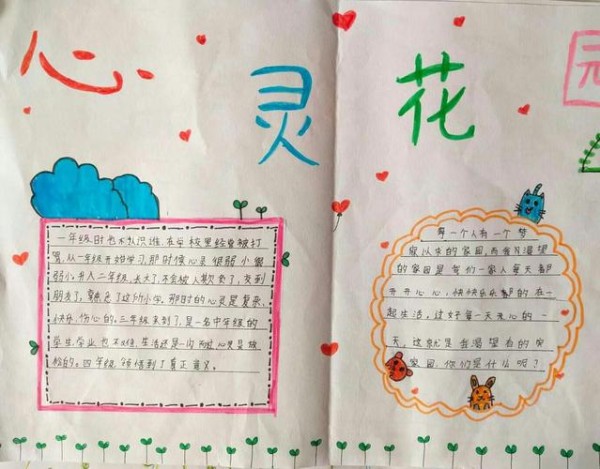 心灵花园
一年级时也不认识谁,在学校里经常被打
骂,从一年级开始学习,那时候心灵很弱小
弱小,升入二年级,长大了,不会被人欺负了,交到
朋友了,这所小学,那时的心灵是复杂、
快乐,伤心的。三年级来到了,是一名中年级的
学生,学业也不生活还是一心灵是放
松的。四年级,领悟到了真正意义。
每一个人有一个梦
以来的家园,而我渴望
的家园是我们一家人每天都
开开心心,快快乐乐的在一
起生活,过好每一天开心的一
天,这就是我渴望有的
家园,你们是什么呢?